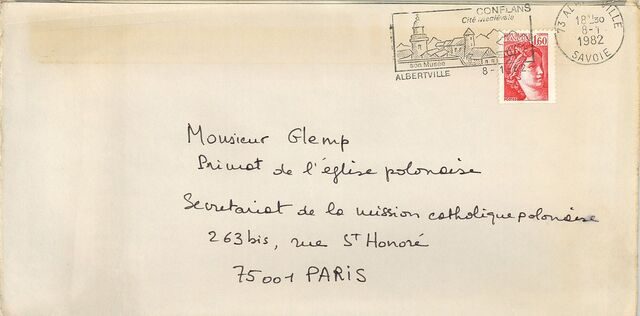 CONFLANS
Cité médiévale
son Musée
ALBERTVILLE
8-1
73 ALBERTVILLE
18H30
8-1
1982
SAVOIE
1,60
Monsieur Glemp
Primat de l'église polonaise
Secretariat de la mission catholique polonaise
263bis, rue St Honoré
75001 PARIS